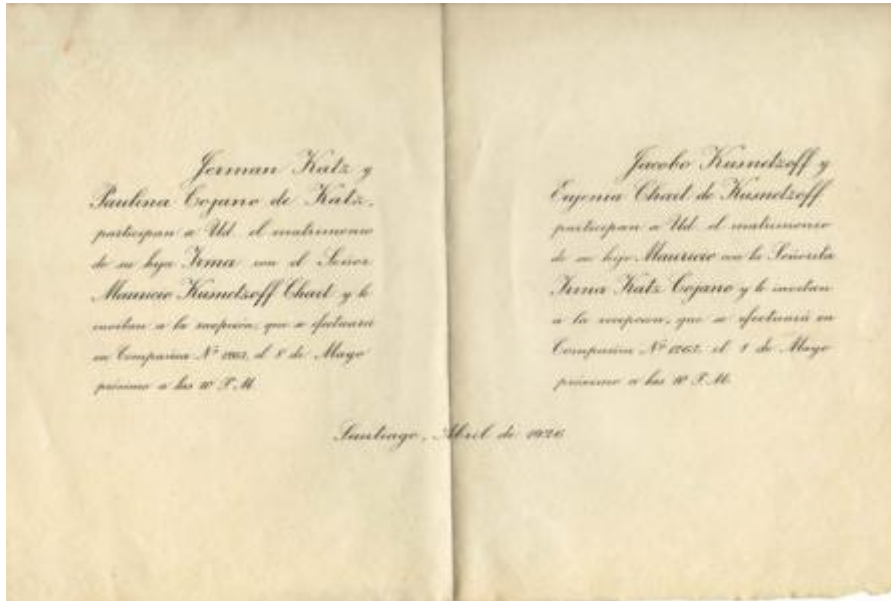 Jerman Katz y
Paulina Cojano de Katz,
participan a Ud. el matrimonio
de su hija Irma con el Señor
Mauricio Kusnetzoff Chait y le
invitan a la recepción, que se efectuará
en Compañia Nº el 8 de Mayo
próximo a las 10 P.M.
Jacobo Kusnetzoff y
Eujenia Chait de Kusnetzoff
participan a Ud. el matrimonio
de su hijo Mauricio con la Señorita
Irma Katz Cojano y le invitan
a la recepcion, que se efectuará en
Compañia Nº el 8 de Mayo
próximo a las 10 P.M.
Santiago, Abril de 1926